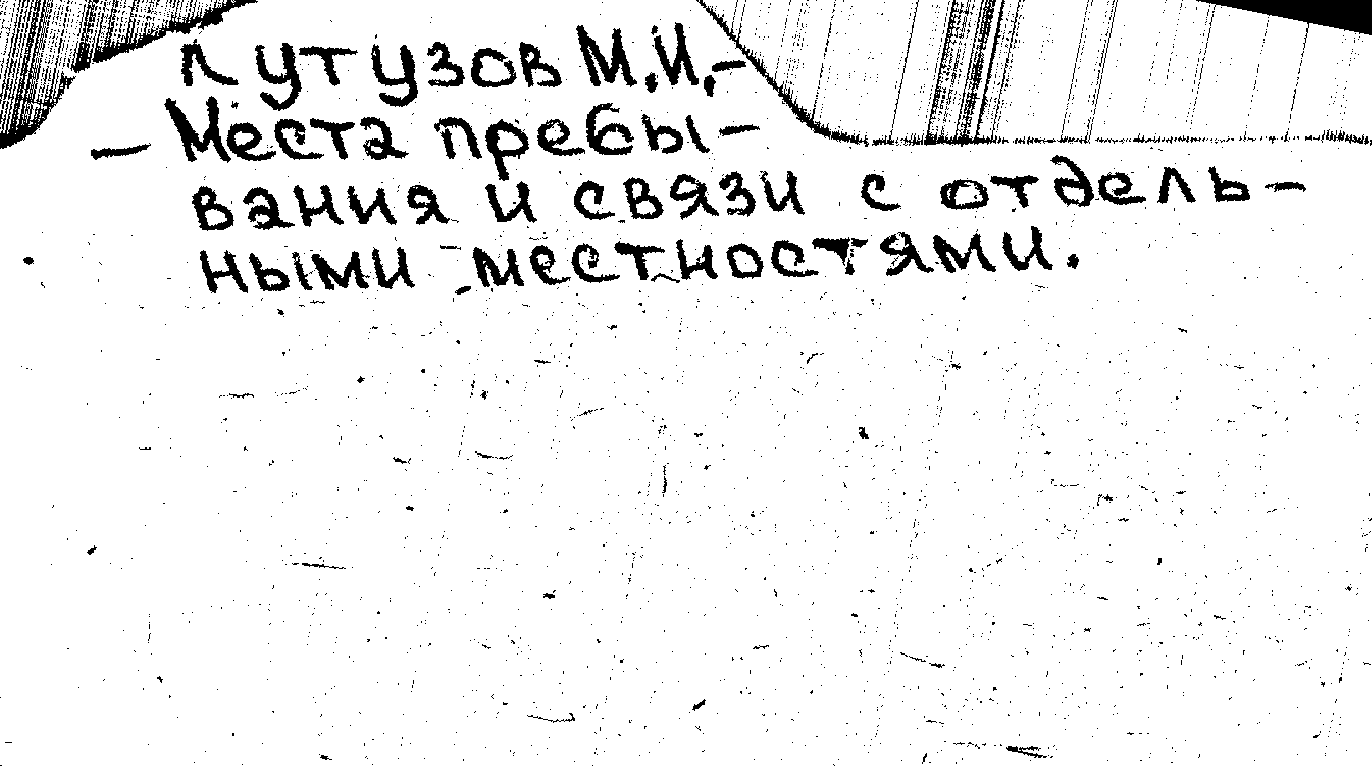 Кутузов М.И.–
– Места пребы–
вания и связи с отдель–
ными местностями.